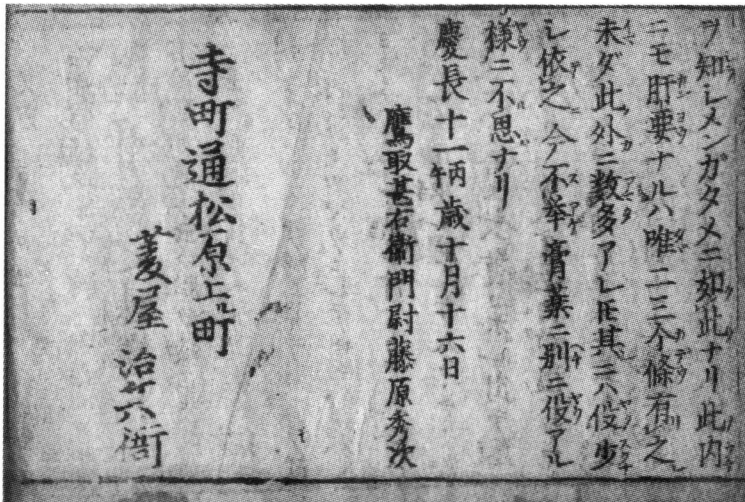 ヲ知シメンガタメニ如此ナリ此内
ニモ肝要ナルハ唯二三个條有之
未ダ此外ニ数多アレ𪜈其ニハ役少
シ依之今不挙膏薬ニ別ニ役アル
様ニ不思ナリ
慶長十一丙午歳十月十六日
鷹取甚右衛門尉藤原秀次
寺町通松原上ル町
菱屋 治兵衛